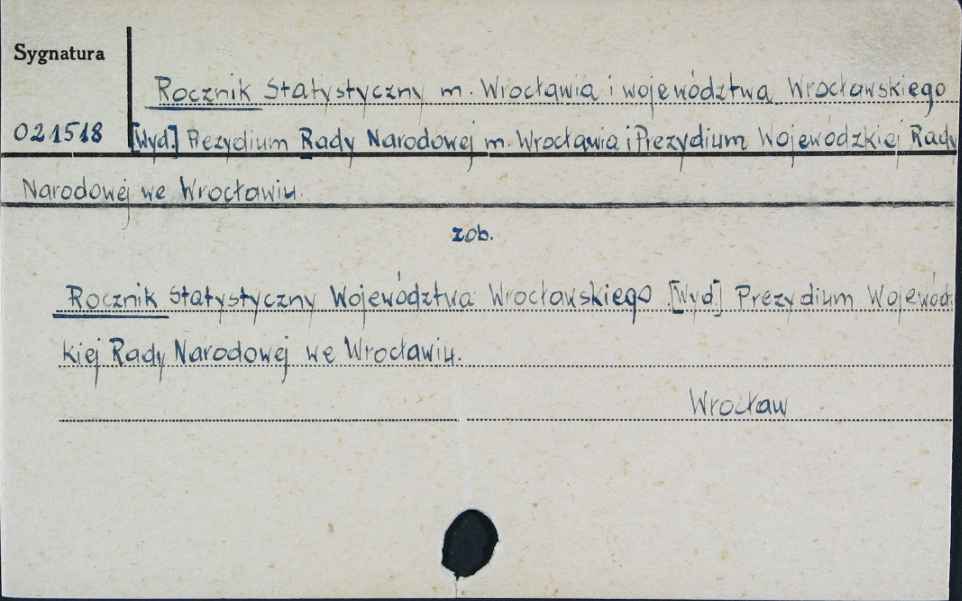 Sygnatura
Rocznik Statystyczny m. Wrocławia i województwa Wrocławskiego
021518 [Wyd.] Prezydium Rady Narodowej m. Wrocławia i Prezydium Wojewódzkiej Rady
Narodowej we Wrocławiu.
zob.
Rocznik Statystyczny Województwa Wrocławskiego [Wyd.] Prezydium Wojewódz
kiej Rady Narodowej we Wrocławiu.
Wrocław